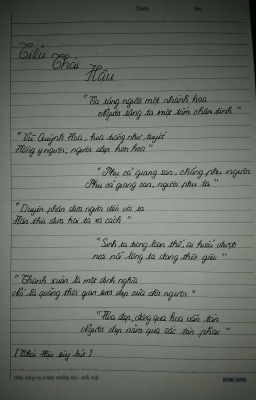 Date No
Tiểu
Thái
Hậu
"Ta tặng người một nhành hoa
Người tặng ta một tấm chân tình"
"Vũ Quỳnh Hoa, hoa trắng như tuyết
Hồng y người, người đẹp hơn hoa"
"Phụ cả giang san, chẳng phụ người
Phụ cả giang san, người phụ ta"
"Duyên phận đưa người đến với ta
Hận thù đưa hai ta xa cách"
"Sinh ra trong loạn thế, ai hiểu được
nơi nà lòng ta đang thét gào"
"Thanh xuân là một định nghĩa
Nó là quãng thời gian tươi đẹp của đời người"
"Hoa đẹp, đông qua hoa vẫn tàn
Người đẹp năm qua sắc tàn phai"
[Thái Hậu tùy bút]
Giấy trắng tự nhiên chống lóa - mỏi mắt